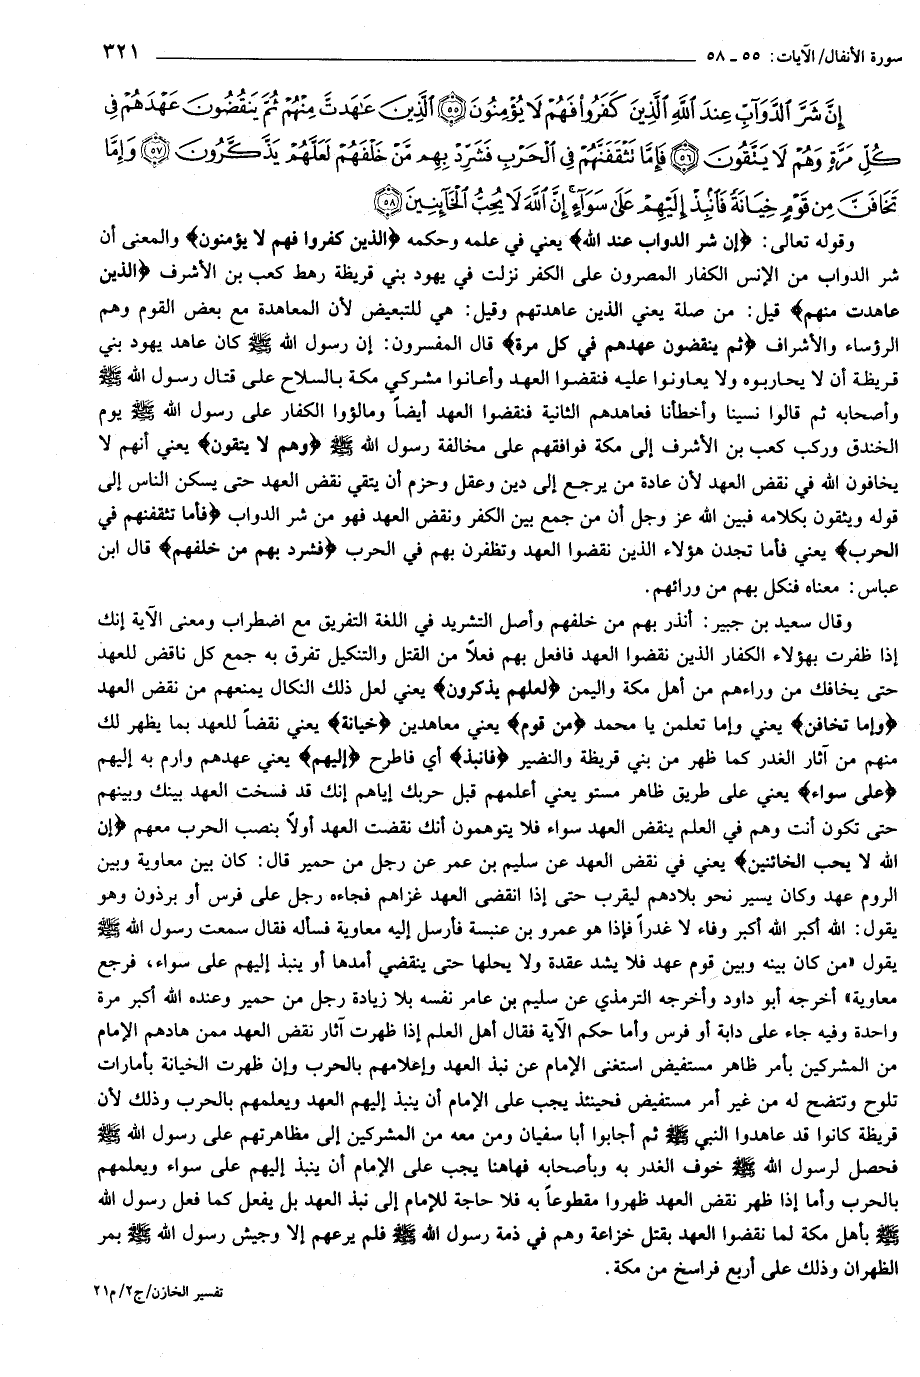 سورة الأنفال/ الآيات: ٥٥ ـ ٥٨ ٣٢١
إِنَّ شَرَّ الدَّوَآبِّ عِندَ اللَّهِ الَّذِينَ كَفَرُوا فَهُمْ لَا يُؤْمِنُونَ ٥٥ الَّذِينَ عَاهَدتَّ مِنْهُمْ ثُمَّ يَنقُضُونَ عَهْدَهُمْ فِي
كُلِّ مَرَّةٍ وَهُمْ لَا يَتَّقُونَ ٥٦ فَإِمَّا تَثْقَفَنَّهُمْ فِي الْحَرْبِ فَشَرِّدْ بِهِم مَّنْ خَلْفَهُمْ لَعَلَّهُمْ يَذَّكَّرُونَ ٥٧ وَإِمَّا
تَخَافَنَّ مِن قَوْمٍ خِيَانَةً فَانبِذْ إِلَيْهِمْ عَلَى سَوَآءٍ إِنَّ اللَّهَ لَا يُحِبُّ الْخَآئِنِينَ ٥٨
وقوله تعالى: ﴿إن شر الدواب عند الله﴾ يعني في علمه وحكمه ﴿الذين كفروا فهم لا يؤمنون﴾ والمعنى أن
شر الدواب من الإنس الكفار المصرون على الكفر نزلت في يهود بني قريظة رهط كعب بن الأشرف ﴿الذين
عاهدت منهم﴾ قيل: من صلة يعني الذين عاهدتهم وقيل: هي للتبعيض لأن المعاهدة مع بعض القوم وهم
الرؤساء والأشراف ﴿ثم ينقضون عهدهم في كل مرة﴾ قال المفسرون: إن رسول الله ﷺ كان عاهد يهود بني
قريظة أن لا يحاربوه ولا يعاونوا عليه فنقضوا العهد وأعانوا مشركي مكة بالسلاح على قتال رسول الله ﷺ
وأصحابه ثم قالوا نسينا وأخطأنا فعاهدهم الثانية فنقضوا العهد أيضاً ومالؤوا الكفار على رسول الله ﷺ يوم
الخندق وركب كعب بن الأشرف إلى مكة فوافقهم على مخالفة رسول الله ﷺ ﴿وهم لا يتقون﴾ يعني أنهم لا
يخافون الله في نقض العهد لأن عادة من يرجع إلى دين وعقل وحزم أن يتقي نقض العهد حتى يسكن الناس إلى
قوله ويثقون بكلامه فبين الله عز وجل أن من جمع بين الكفر ونقض العهد فهو من شر الدواب ﴿فأما تثقفنهم في
الحرب﴾ يعني فأما تجدن هؤلاء الذين نقضوا العهد وتظفرن بهم في الحرب ﴿فشرد بهم من خلفهم﴾ قال ابن
عباس: معناه فنكل بهم من ورائهم.
وقال سعيد بن جبير: أنذر بهم من خلفهم وأصل التشريد في اللغة التفريق مع اضطراب ومعنى الآية إنك
إذا ظفرت بهؤلاء الكفار الذين نقضوا العهد فافعل بهم فعلاً من القتل والتنكيل تفرق به جمع كل ناقض للعهد
حتى يخافك من وراءهم من أهل مكة واليمن ﴿لعلهم يذكرون﴾ يعني لعل ذلك النكال يمنعهم من نقض العهد
﴿وإما تخافن﴾ يعني وإما تعلمن يا محمد ﴿من قوم﴾ يعني معاهدين ﴿خيانة﴾ يعني نقضاً للعهد بما يظهر لك
منهم من آثار الغدر كما ظهر من بني قريظة والنضير ﴿فانبذ﴾ أي فاطرح ﴿إليهم﴾ يعني عهدهم وارم به إليهم
﴿على سواء﴾ يعني على طريق ظاهر مستو يعني أعلمهم قبل حربك إياهم إنك قد فسخت العهد بينك وبينهم
حتى تكون أنت وهم في العلم ينقض العهد سواء فلا يتوهمون أنك نقضت العهد أولاً بنصب الحرب معهم ﴿إن
الله لا يحب الخائنين﴾ يعني في نقض العهد عن سليم بن عمر عن رجل من حمير قال: كان بين معاوية وبين
الروم عهد وكان يسير نحو بلادهم ليقرب حتى إذا انقضى العهد غزاهم فجاءه رجل على فرس أو برذون وهو
يقول: الله أكبر الله أكبر وفاء لا غدراً فإذا هو عمرو بن عنبسة فأرسل إليه معاوية فسأله فقال سمعت رسول الله ﷺ
يقول «من كان بينه وبين قوم عهد فلا يشد عقدة ولا يحلها حتى ينقضي أمدها أو ينبذ إليهم على سواء، فرجع
معاوية» أخرجه أبو داود وأخرجه الترمذي عن سليم بن عامر نفسه بلا زيادة رجل من حمير وعنده الله أكبر مرة
واحدة وفيه جاء على دابة أو فرس وأما حكم الآية فقال أهل العلم إذا ظهرت آثار نقض العهد ممن هادهم الإمام
من المشركين بأمر ظاهر مستفيض استغنى الإمام عن نبذ العهد وإعلامهم بالحرب وإن ظهرت الخيانة بأمارات
تلوح وتتضح له من غير أمر مستفيض فحينئذ يجب على الإمام أن ينبذ إليهم العهد ويعلمهم بالحرب وذلك لأن
قريظة كانوا قد عاهدوا النبي ﷺ ثم أجابوا أبا سفيان ومن معه من المشركين إلى مظاهرتهم على رسول الله ﷺ
فحصل لرسول الله ﷺ خوف الغدر به وبأصحابه فهاهنا يجب على الإمام أن ينبذ إليهم على سواء ويعلمهم
بالحرب وأما إذا ظهر نقض العهد ظهروا مقطوعاً به فلا حاجة للإمام إلى نبذ العهد بل يفعل كما فعل رسول الله
ﷺ بأهل مكة لما نقضوا العهد بقتل خزاعة وهم في ذمة رسول الله ﷺ فلم يرعهم إلا وجيش رسول الله ﷺ بمر
الظهران وذلك على أربع فراسخ من مكة.
تفسير الخازن/ج٢/م٢١